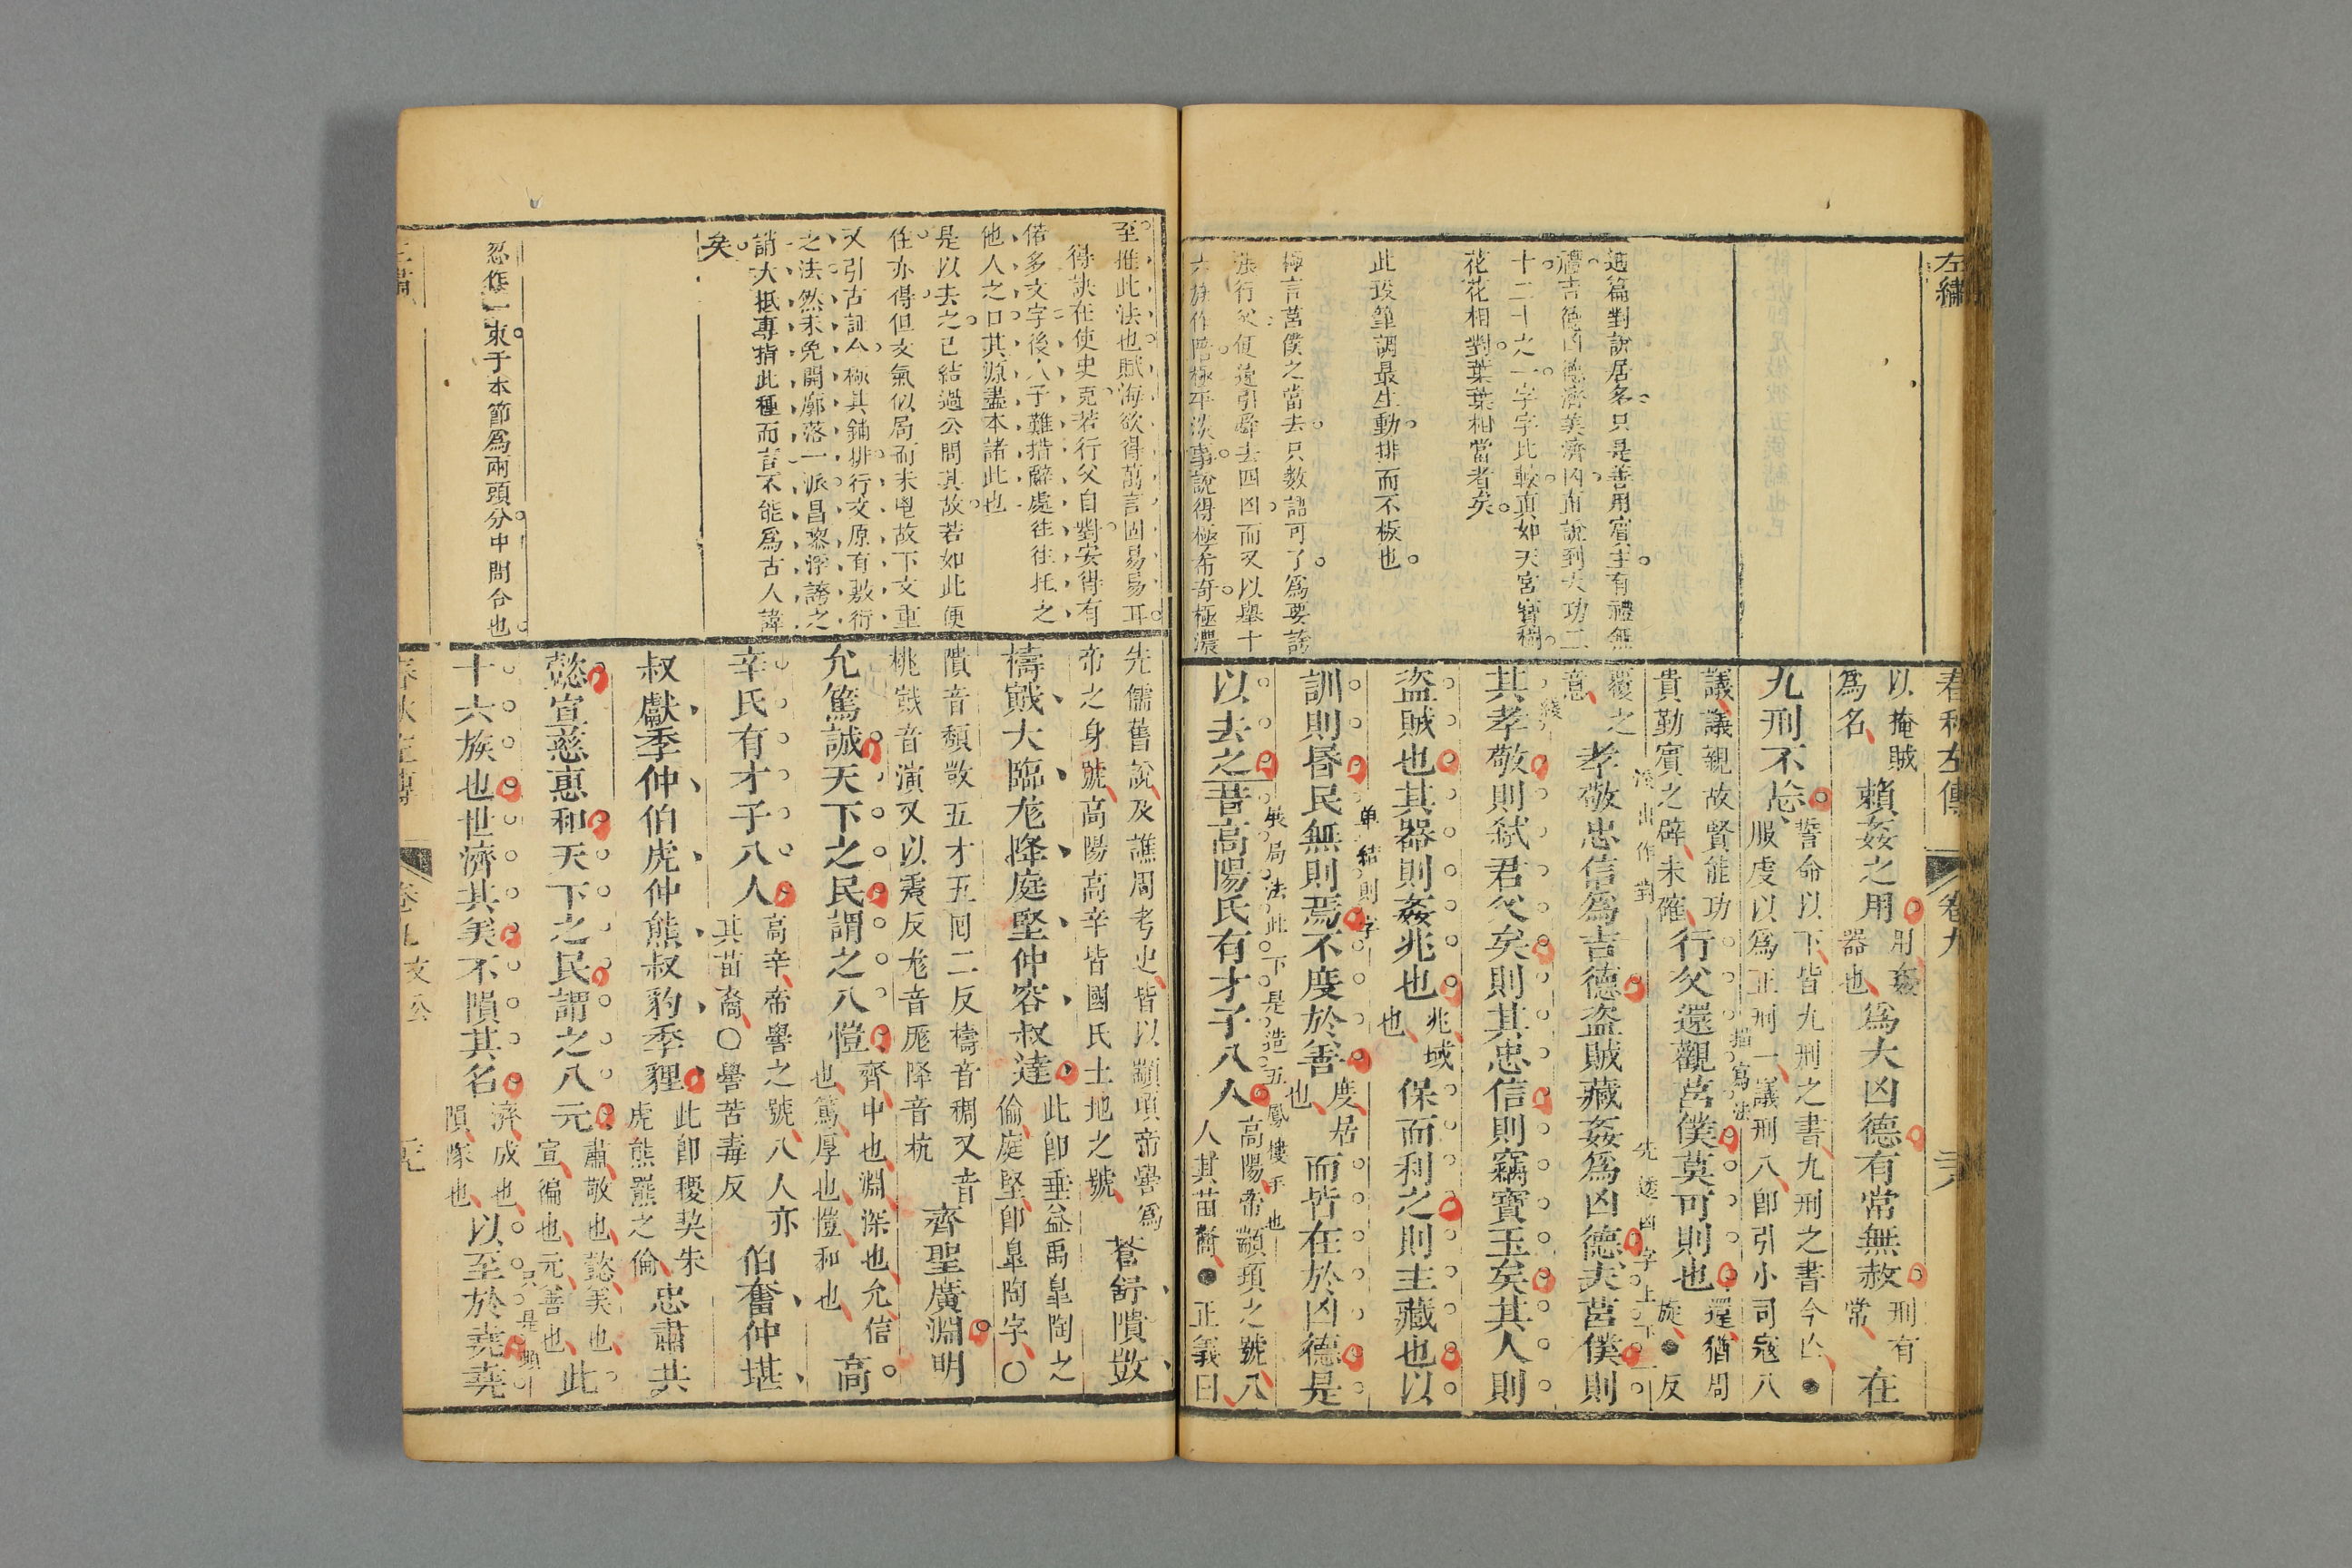 左繡
通篇對說居多只是善用賓主有禮無
禮吉德凶德濟美濟凶直說到大功二
十二十之一字字比較眞如天宮寶稠
花花相對葉葉相當者矣
此段筆調最生動排而不板也
極言莒僕之當去只數語可了爲要誇
張行父便遠引舜去四凶而又以舉十
六族作陪極平淡事說得極希奇極濃
春秋左傳 卷九
以掩賊
爲名
賴姦之用
用姦
器也
爲大凶德有常無赦
刑有
常
在
九刑不忘
誓命以下皆九刑之書九刑之書今亡●
服虔以爲正刑一議刑八卽引小司寇八
議議親故賢能功
貴勤賓之辟未確
行父還觀莒僕莫可則也
還猶周
旋●反
描寫法
覆之
意
孝敬忠信爲吉德盜賊藏姦爲凶德夫莒僕則
作對
先透凶字上下一
其孝敬則弒君父矣則其忠信則竊寶玉矣其人則
盜賊也其器則姦兆也
兆域
也
保而利之則主藏也以
單結則字
訓則昬民無則焉不度於善
度居
也
而皆在於凶德是
展局法此下是造五鳳樓手也
以去之昔高陽氏有才子八人
高陽帝顓頊之號八
人其苗裔●正義曰
至推此法也賦海欲得萬言固易易耳
得訣在使史克若行父自對安得有
偌多文字後八子難措辭處往往托之
他人之口其源盡本諸此也
是以去之已結過公問其故若如此便
住亦得但文氣似局而未鬯故下文重
又引古証今極其鋪排行文原有敷衍
之法然未免開廓落一派昌黎浮誇之
誚大抵專指此種而言不能爲古人諱
矣
忽作一束于本節爲兩頭分中間合也
先儒舊說及譙周考史皆以顓頊帝嚳爲
帝之身號高陽高辛皆國氏土地之號
蒼舒隤敳
檮戭大臨尨降庭堅仲容叔達
此卽垂益禹臯陶之
倫庭堅卽臯陶字〇
隤音頹敳五才五回二反檮音稠又音
桃戭音演又以震反尨音厖降音杭
齊聖廣淵明
允篤誠天下之民謂之八愷
齊中也淵深也允信
也篤厚也愷和也
高
辛氏有才子八人
高辛帝嚳之號八人亦
其苗裔〇嚳苦毒反
伯奮仲堪
叔獻季仲伯虎仲熊叔豹季貍
此卽稷契朱
虎熊羆之倫
忠肅共
懿宣慈惠和天下之民謂之八元
肅敬也懿美也
宣徧也元善也
此
十六族也世濟其美不隕其名
濟成也
隕隊也
以至於堯堯
春秋左傳 卷九 文公